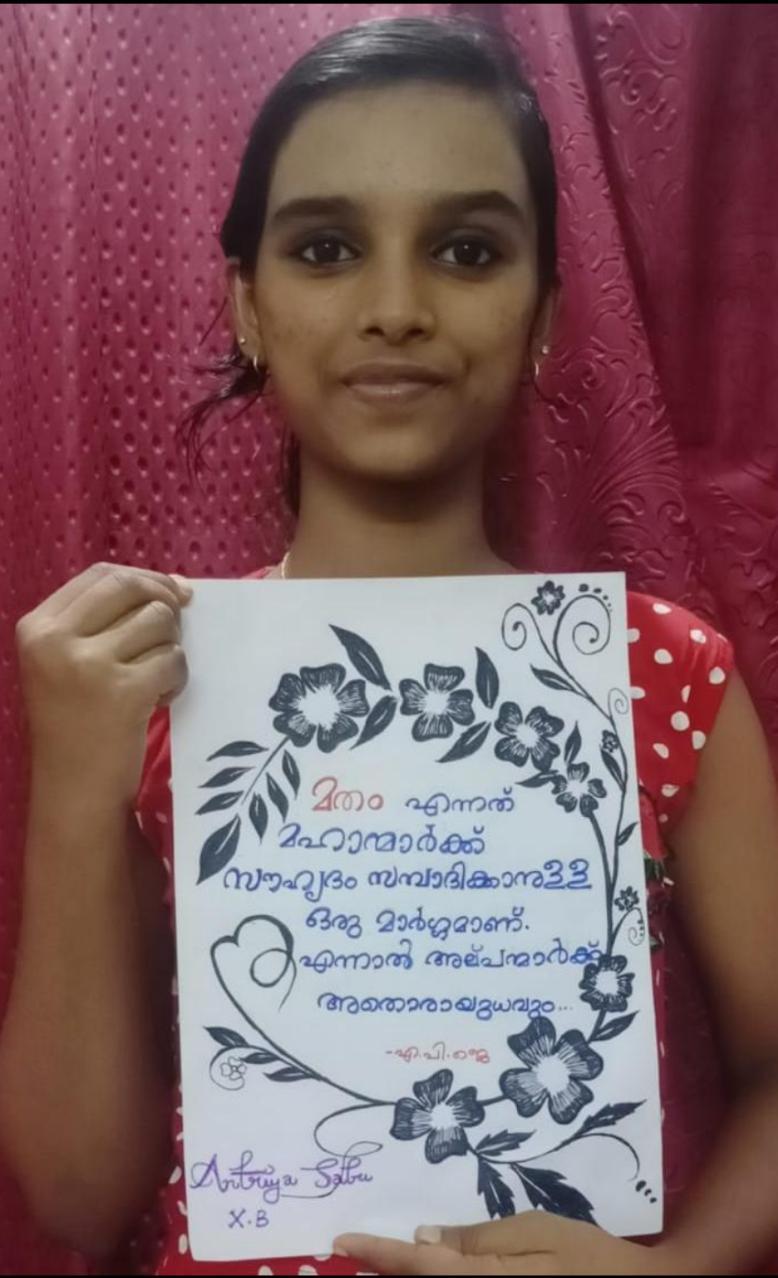 മതം എന്നത്
മഹാന്മാർക്ക്
സൗഹൃദം സമ്പാദിക്കാനുള്ള
ഒരു മാർഗ്ഗമാണ്.
എന്നാൽ അല്പന്മാർക്ക്
അതൊരായുധവും...
-എ.പി.ജെ
Sabu
X.B